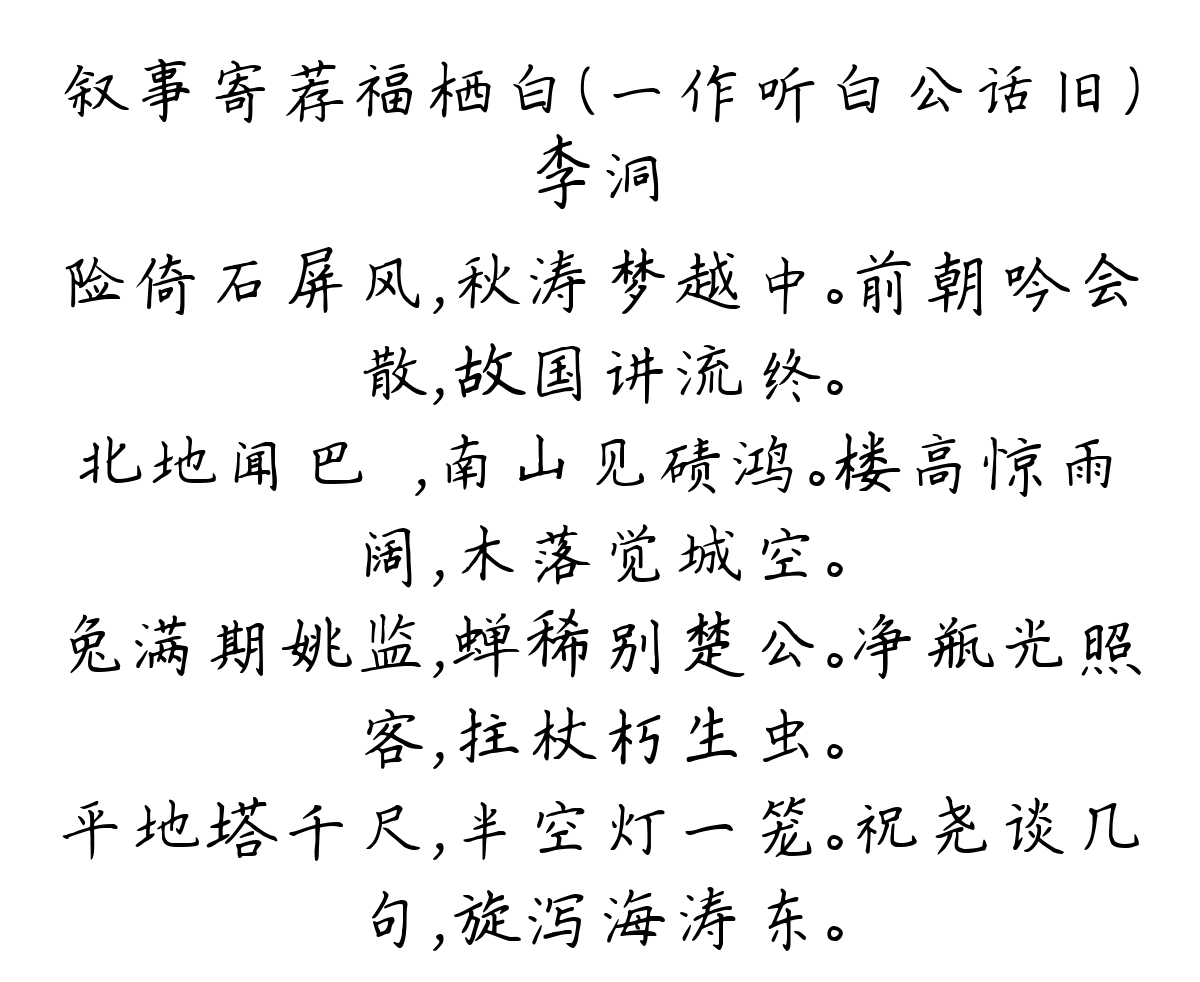 叙事寄荐福栖白(一作听白公话旧)
李洞
险倚石屏风,秋涛梦越中。前朝吟会
散,故国讲流终。
北地闻巴 ,南山见碛鸿。楼高惊雨
阔,木落觉城空。
兔满期姚监,蝉稀别楚公。净瓶光照
客,拄杖朽生虫。
平地塔千尺,半空灯一笼。祝尧谈几
句,旋泻海涛东。